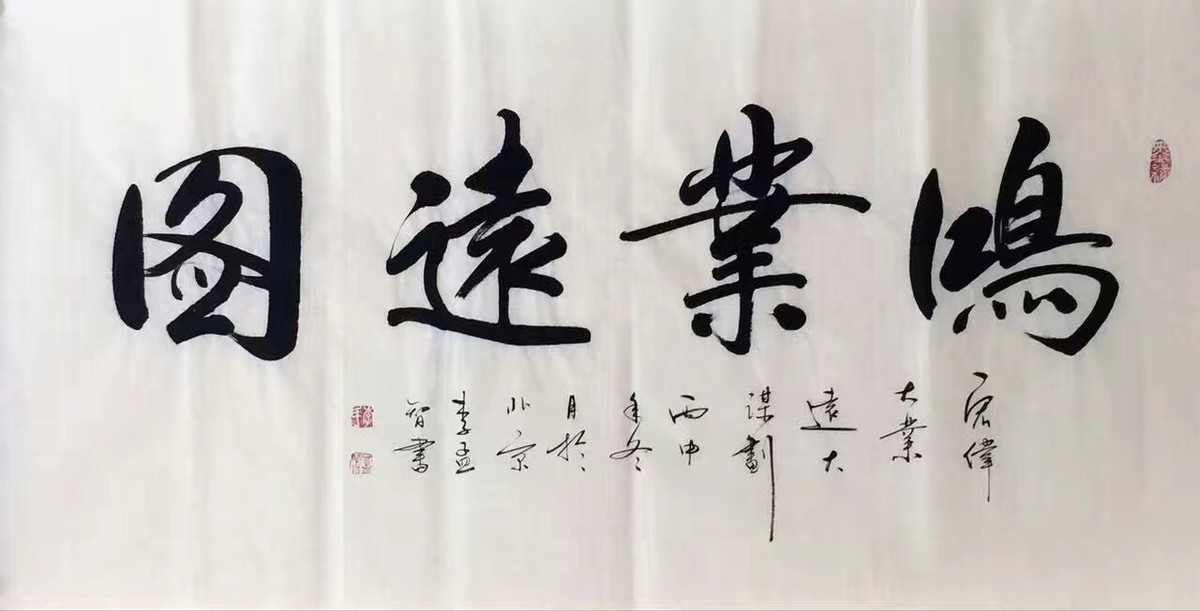 鴻業遠图
宏偉
大業
遠大
謀劃
丙申
年冬
月於
北京
李孟
智書